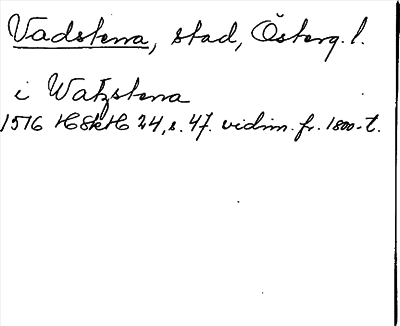 Vadstena, stad, Österg. l.
i Watzstena
1516 HSkH 24, s. 47. vidim. fr. 1800-t.